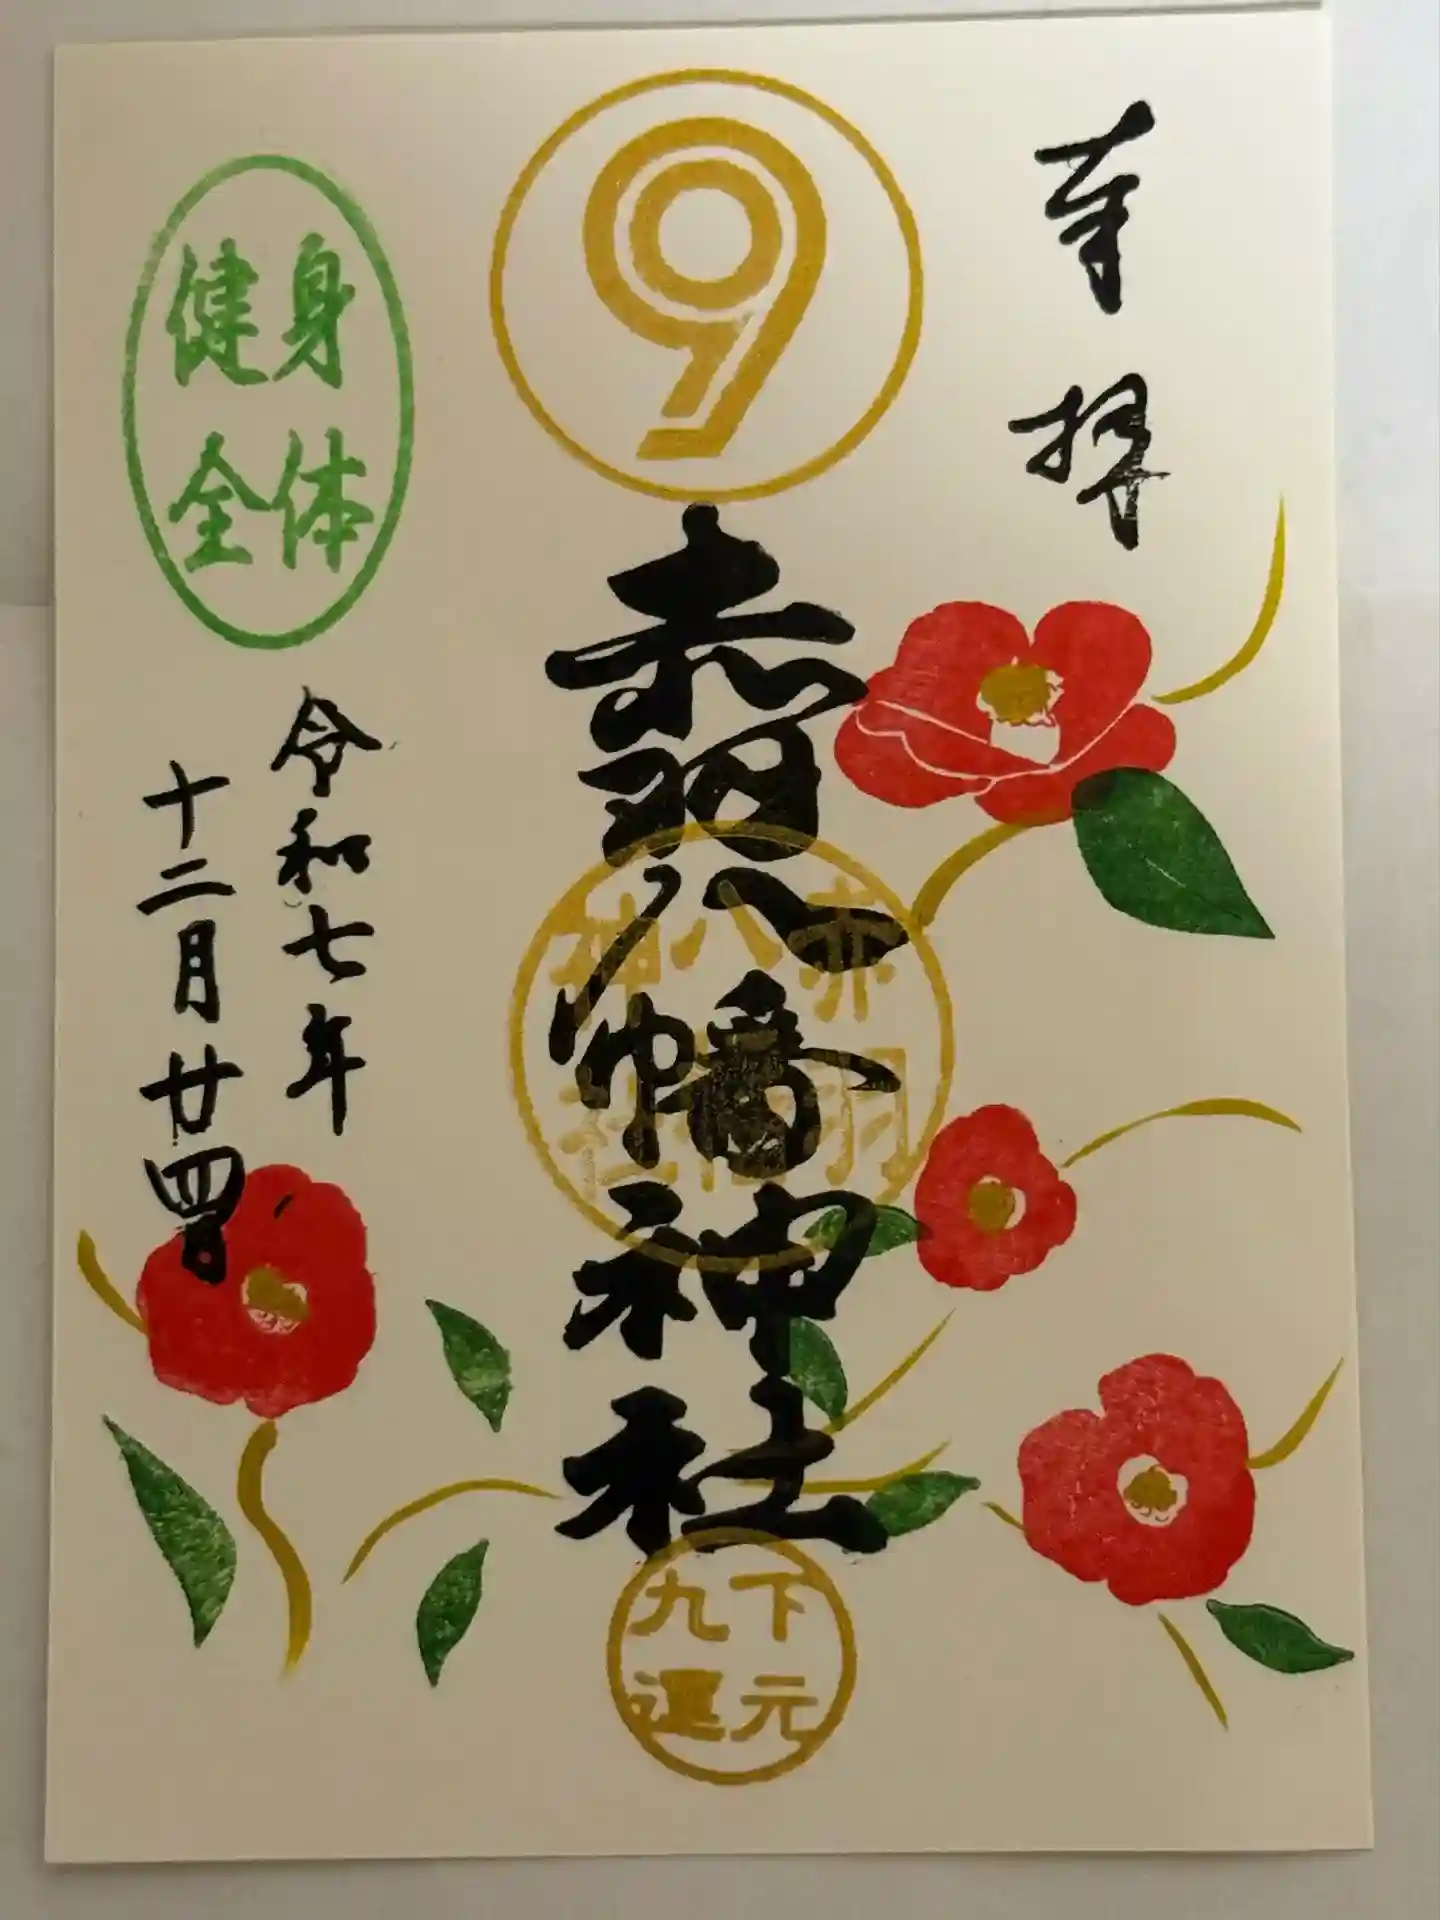 奉拝
9
赤羽八幡神社
赤羽
八幡
神社
下元
九運
身体
健全
令和七年
十二月廿四日